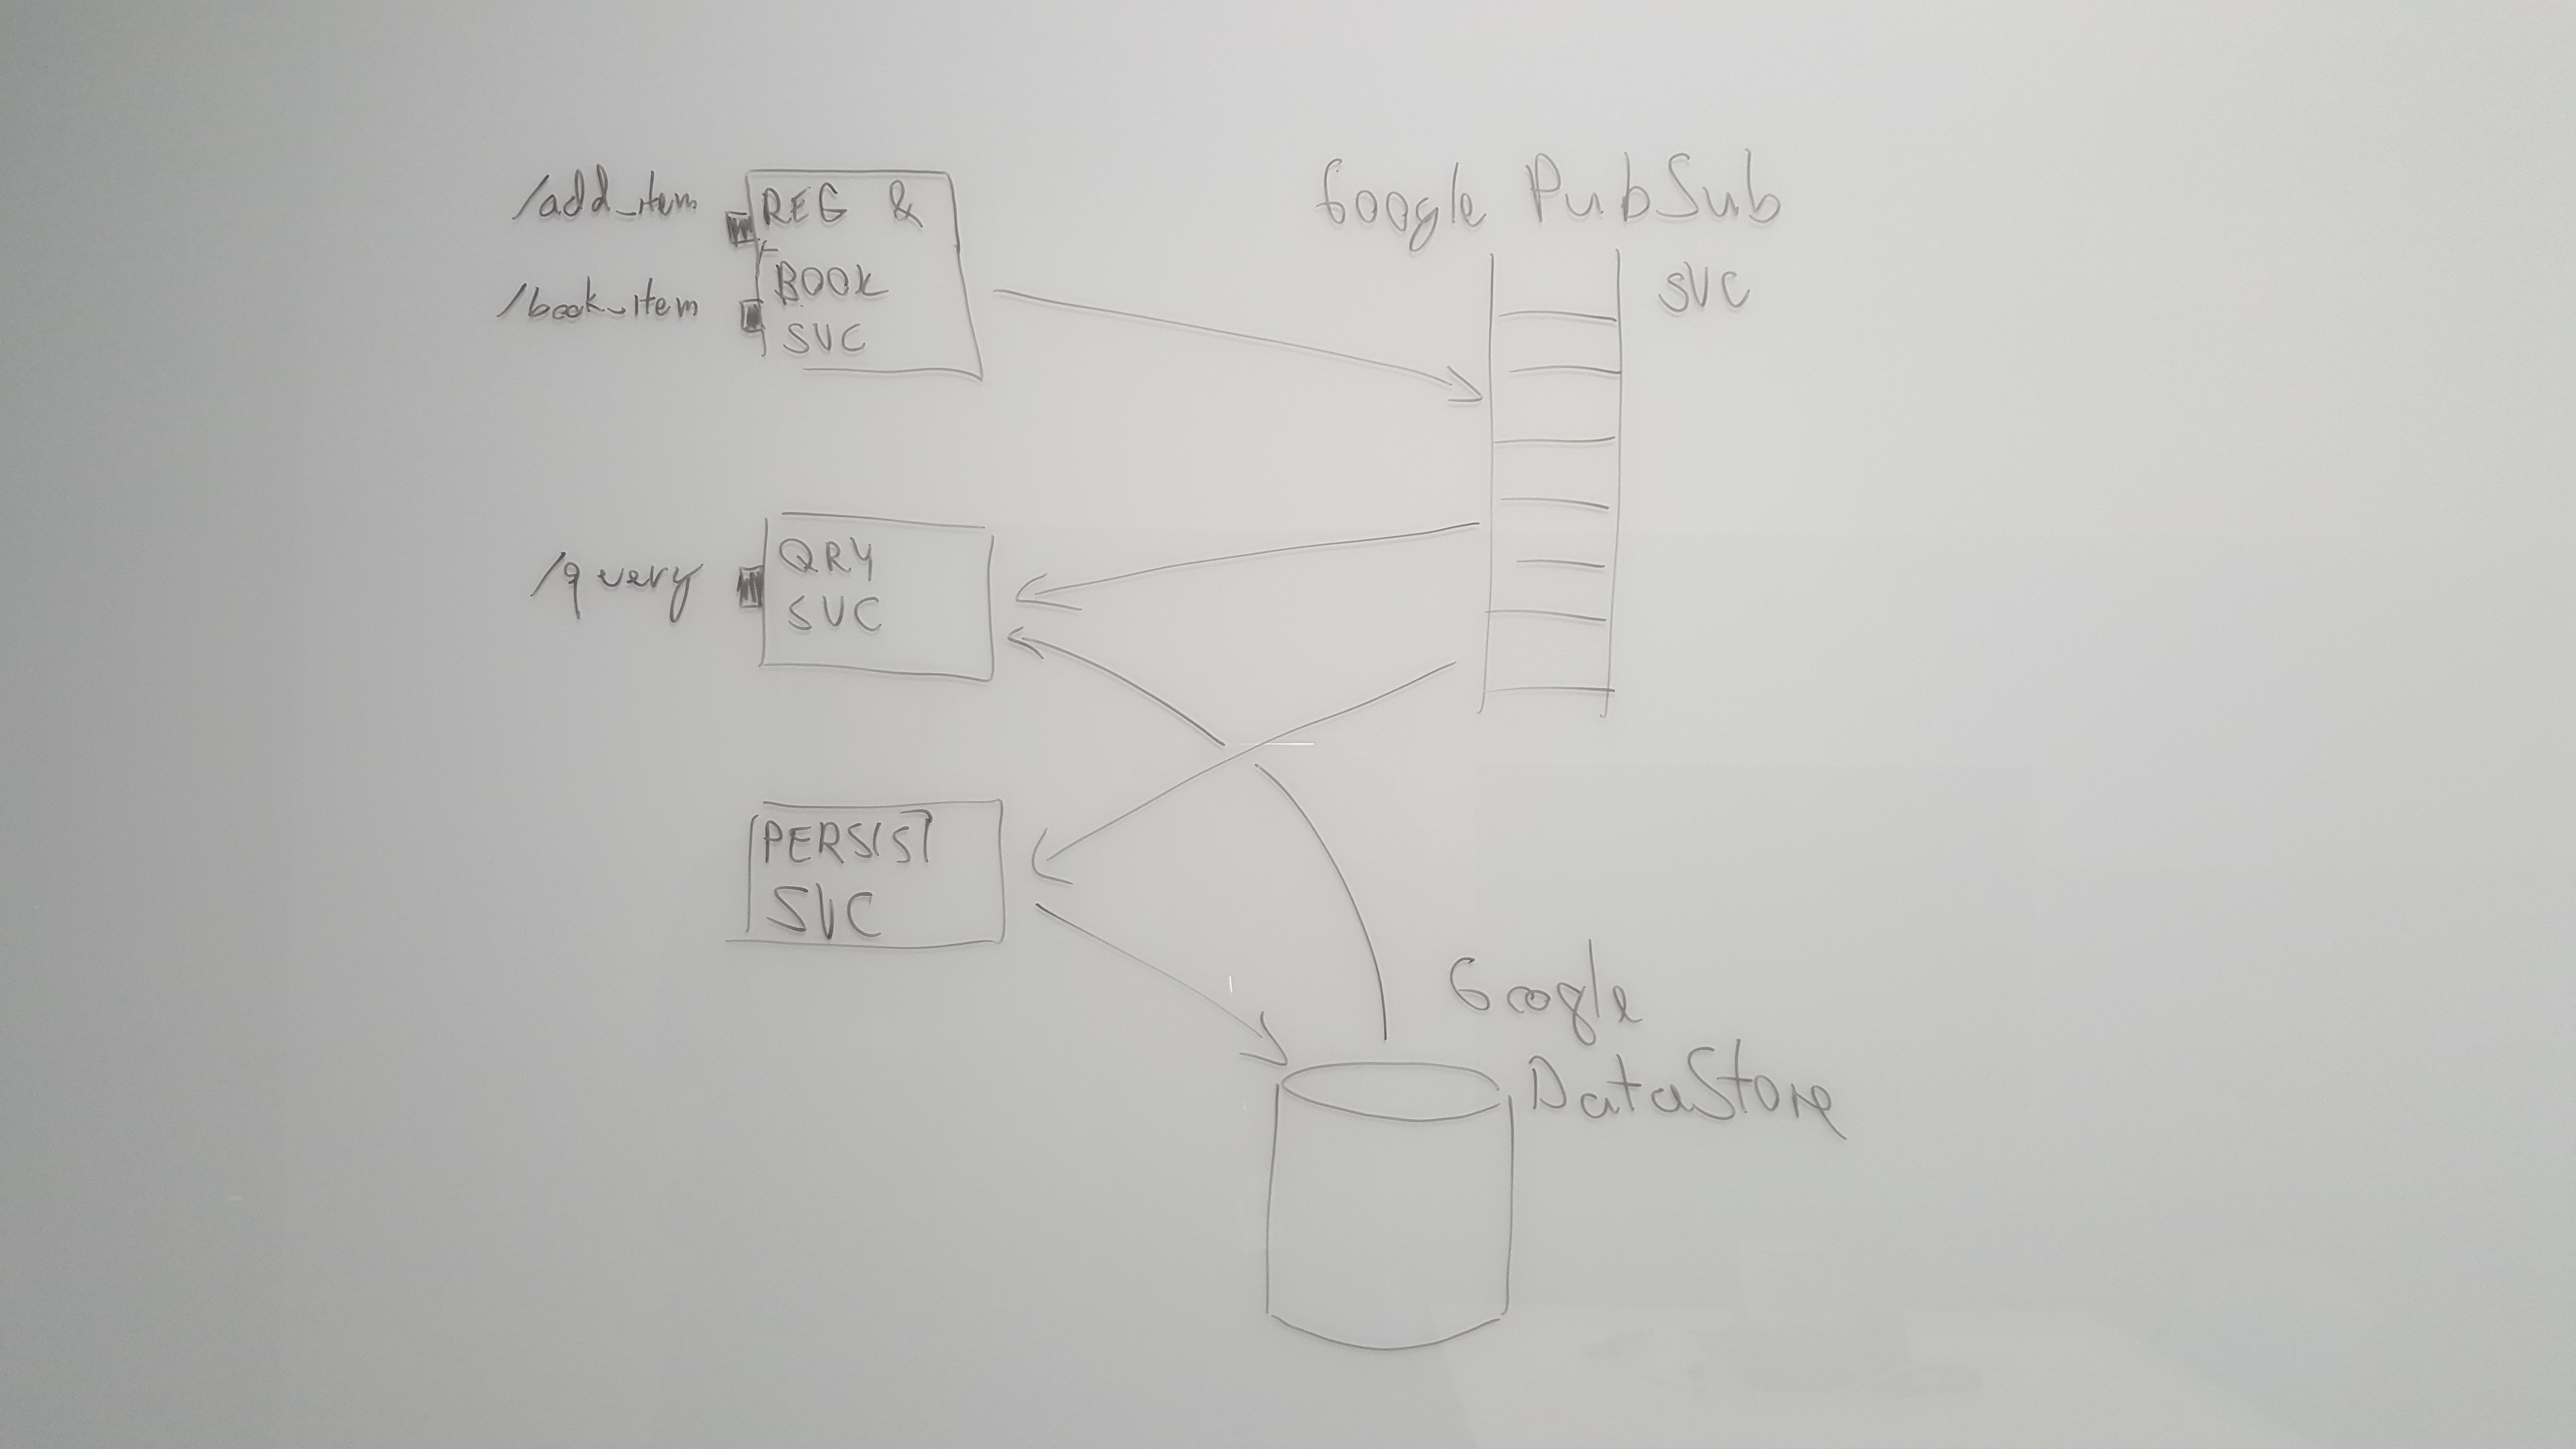 /add_item
REG &
/book_item
BOOK
SVC
Google PubSub
SVC
/query
QRY
SVC
PERSIST
SVC
Google
DataStore